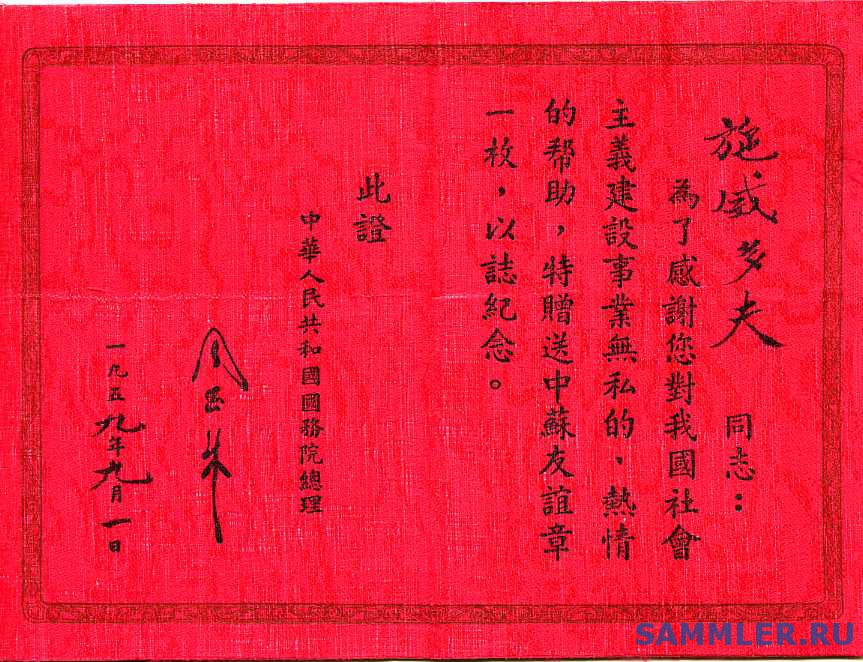 施威多夫 同志：
為了感謝您對我國社會
主義建設事業無私的、熱情
的幫助，特贈送中蘇友誼章
一枚，以誌紀念。
此證
中華人民共和國國務院總理
周恩来
一九五九年九月一日
SAMMLER.RU